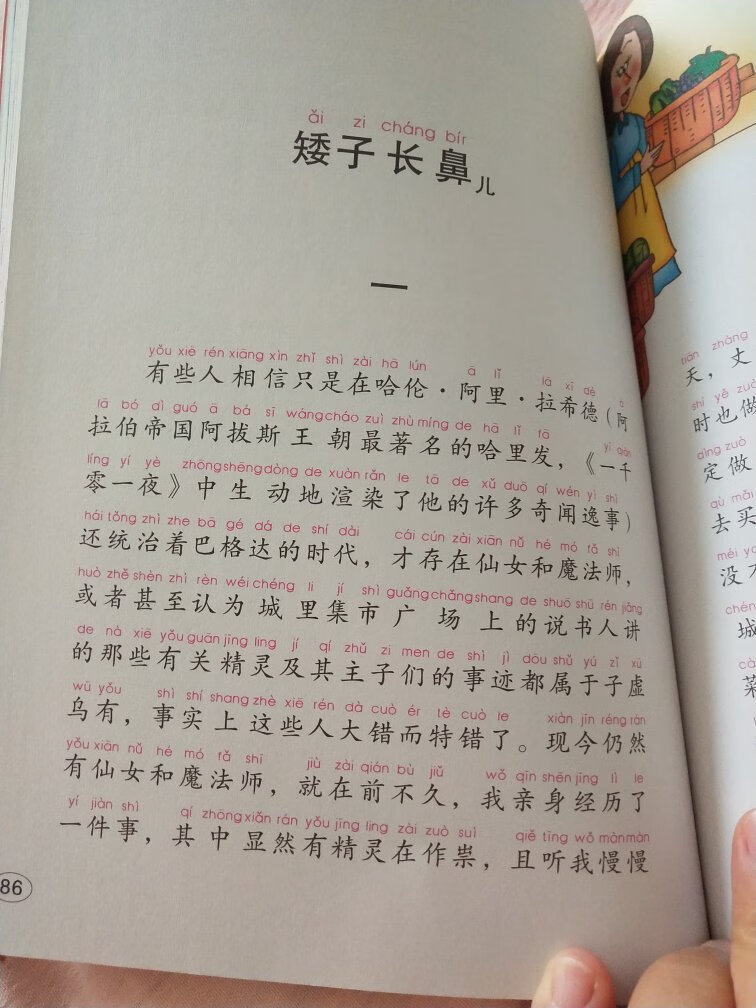 ǎi zi cháng bír
矮子长鼻儿
一
yǒu xiē rén xiāng xìn zhǐ shì zài hā lún ā lǐ lā xī dé ā
有些人相信只是在哈伦·阿里·拉希德(阿
lā bó dì guó ā bá sī wáng cháo zuì zhù míng de hā lǐ fā yī qiān
拉伯帝国阿拔斯王朝最著名的哈里发,《一千
líng yí yè zhōng shēng dòng de xuàn rǎn le tā de xǔ duō qí wén yì shì
零一夜》中生动地渲染了他的许多奇闻逸事)
hái tǒng zhì zhe bā gé dá de shí dài cái cún zài xiān nǚ hé mó fǎ shī
还统治着巴格达的时代,才存在仙女和魔法师,
huò zhě shèn zhì rèn wéi chéng li jí shì guǎng chǎng shang de shuō shū rén jiǎng
或者甚至认为城里集市广场上的说书人讲
de nà xiē yǒu guān jīng ling jí qí zhǔ zi men de shì jì dōu shǔ yú zǐ xū
的那些有关精灵及其主子们的事迹都属于子虚
wū yǒu shì shí shang zhè xiē rén dà cuò ér tè cuò le xiàn jīn réng rán
乌有,事实上这些人大错而特错了。现今仍然
yǒu xiān nǚ hé mó fǎ shī jiù zài qián bù jiǔ wǒ qīn shēn jīng lì le
有仙女和魔法师,就在前不久,我亲身经历了
yí jiàn shì qí zhōng xiǎn rán yǒu jīng ling zài zuò suì qiě tīng wǒ màn màn
一件事,其中显然有精灵在作祟,且听我慢慢
86
tiān zhàng
天,丈
shí yě zuò
时也做
dìng zuò
定做
qù mǎi
去买
没
城
菜